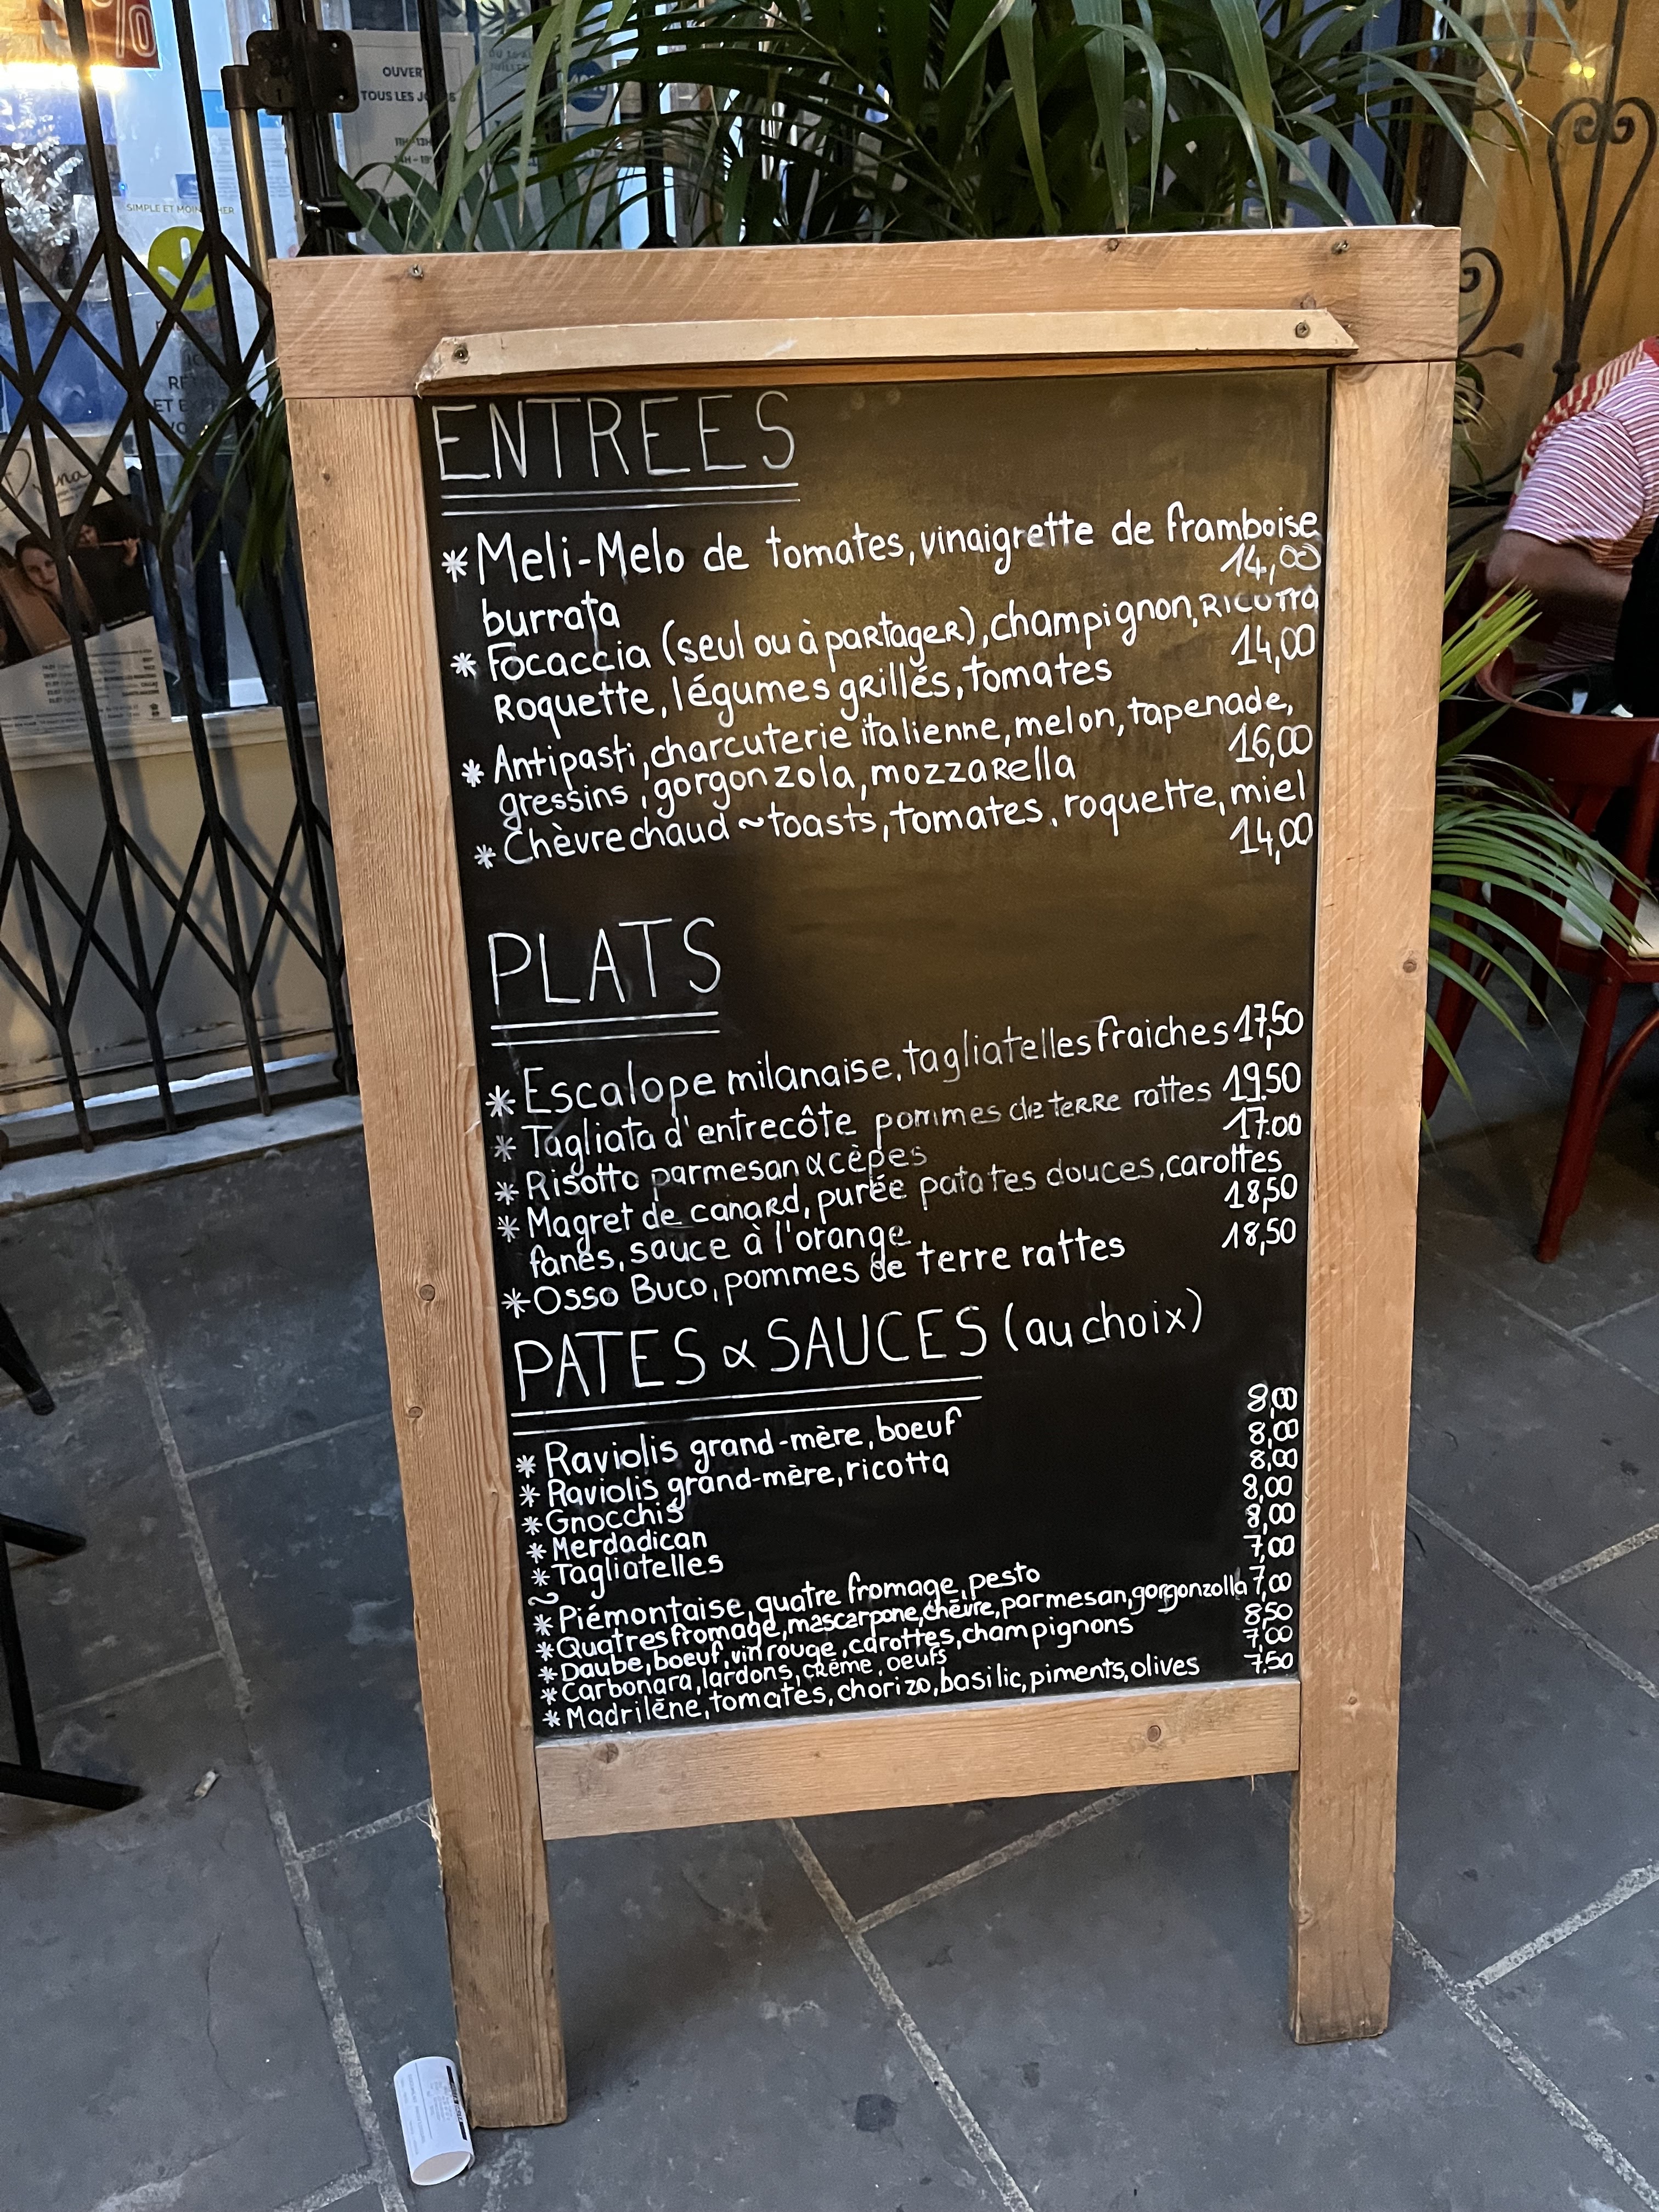 OUVERT
TOUS LES JOURS
SIMPLE ET MOINS CHER
ENTREES
* Meli-Melo de tomates, vinaigrette de framboise
14,00
burrata
* Focaccia (seul ou à partager), champignon, RICOTTA
14,00
Roquette, légumes grillés, tomates
* Antipasti, charcuterie italienne, melon, tapenade,
16,00
gressins, gorgonzola, mozzarella
* Chèvre chaud ~ toasts, tomates, roquette, miel
14,00
PLATS
* Escalope milanaise, tagliatelles fraiches 17,50
* Tagliata d'entrecôte pommes de terre rattes 19.50
* Risotto parmesan & cèpes 17.00
* Magret de canard, purée patates douces, carottes
fanes, sauce à l'orange 18,50
* Osso Buco, pommes de terre rattes 18,50
PATES & SAUCES (au choix)
* Raviolis grand-mère, boeuf 8,00
* Raviolis grand-mère, ricotta 8,00
* Gnocchis 8,00
* Merdadican 8,00
* Tagliatelles 8,00
~
* Piémontaise, quatre fromage, pesto 7,00
* Quatres fromage, mascarpone, chèvre, parmesan, gorgonzolla 7,00
* Daube, boeuf, vin rouge, carottes, champignons 8,50
* Carbonara, lardons, crème, oeufs 7,00
* Madrilène, tomates, chorizo, basilic, piments, olives 7.50